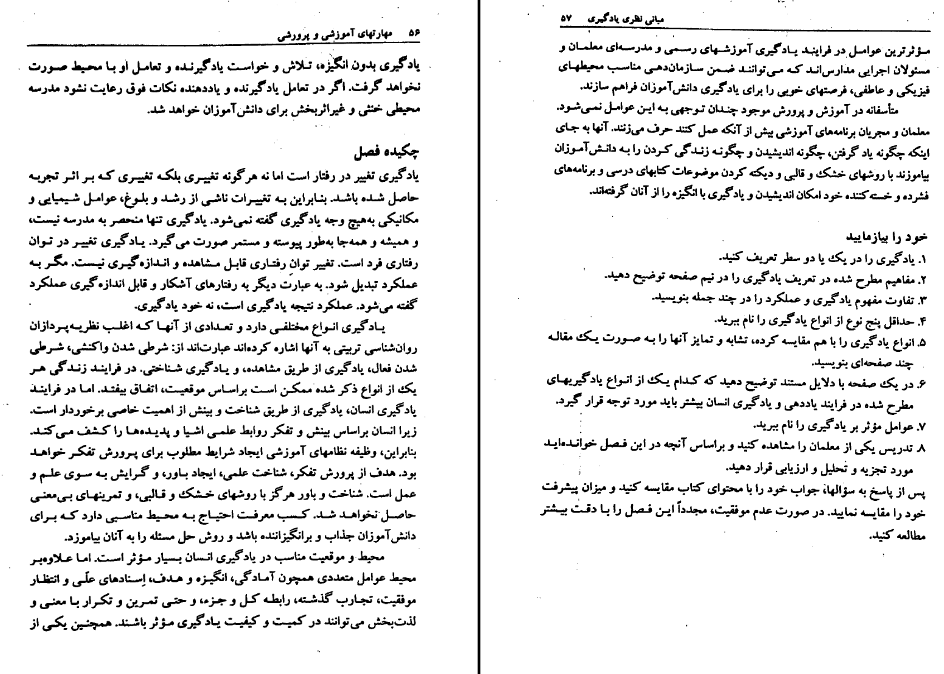 ۵۶ مهارتهای آموزشی و پرورشی
یادگیری بدون انگیزه، تلاش و خواست یادگیرنده و تعامل او با محیط صورت
نخواهد گرفت. اگر در تعامل یادگیرنده و یاددهنده نکات فوق رعایت نشود مدرسه
محیطی خنثی و غیراثربخش برای دانش‌آموزان خواهد شد.
چکیده فصل
یادگیری تغییر در رفتار است اما نه هرگونه تغییری بلکه تغییری که بر اثر تجربه
حاصل شده باشد. بنابراین به تغییرات ناشی از رشد و بلوغ، عوامل شیمیایی و
مکانیکی به‌هیچ وجه یادگیری گفته نمی‌شود. یادگیری تنها منحصر به مدرسه نیست،
و همیشه و همه‌جا به‌طور پیوسته و مستمر صورت می‌گیرد. یادگیری تغییر در توان
رفتاری فرد است. تغییر توان رفتاری قابل مشاهده و اندازه‌گیری نیست. مگر به
عملکرد تبدیل شود. به عبارت دیگر به رفتارهای آشکار و قابل اندازه‌گیری عملکرد
گفته می‌شود. عملکرد نتیجه یادگیری است، نه خود یادگیری.
یادگیری انواع مختلفی دارد و تعدادی از آنها که اغلب نظریه‌پردازان
روان‌شناسی تربیتی به آنها اشاره کرده‌اند عبارت‌اند از: شرطی شدن واکنشی، شرطی
شدن فعال، یادگیری از طریق مشاهده، و یادگیری شناختی. در فرایند زندگی هر
یک از انواع ذکر شده ممکن است براساس موقعیت، اتفاق بیفتد. اما در فرایند
یادگیری انسان، یادگیری از طریق شناخت و بینش از اهمیت خاصی برخوردار است.
زیرا انسان براساس بینش و تفکر روابط علمی اشیا و پدیده‌ها را کشف می‌کند.
بنابراین، وظیفه نظامهای آموزشی ایجاد شرایط مطلوب برای پرورش تفکر خواهد
بود. هدف از پرورش تفکر، شناخت علمی، ایجاد باور، و گرایش به سوی علم و
عمل است. شناخت و باور هرگز با روشهای خشک و قالبی، و تمرینهای بی‌معنی
حاصل نخواهد شد. کسب معرفت احتیاج به محیط مناسبی دارد که برای
دانش‌آموزان جذاب و برانگیزاننده باشد و روش حل مسئله را به آنان بیاموزد.
محیط و موقعیت مناسب در یادگیری انسان بسیار مؤثر است. اما علاوه‌بر
محیط عوامل متعددی همچون آمادگی، انگیزه و هدف، اِسنادهای علّی و انتظار
موفقیت، تجارب گذشته، رابطه کل و جزء، و حتی تمرین و تکرار با معنی و
لذت‌بخش می‌توانند در کمیت و کیفیت یادگیری مؤثر باشند. همچنین یکی از
مبانی نظری یادگیری ۵۷
مؤثرترین عوامل در فرایند یادگیری آموزشهای رسمی و مدرسه‌ای معلمان و
مسئولان اجرایی مدارس‌اند که می‌توانند ضمن سازمان‌دهی مناسب محیطهای
فیزیکی و عاطفی، فرصتهای خوبی را برای یادگیری دانش‌آموزان فراهم سازند.
متأسفانه در آموزش و پرورش موجود چندان توجهی به این عوامل نمی‌شود.
معلمان و مجریان برنامه‌های آموزشی بیش از آنکه عمل کنند حرف می‌زنند. آنها به جای
اینکه چگونه یاد گرفتن، چگونه اندیشیدن و چگونه زندگی کردن را به دانش‌آموزان
بیاموزند با روشهای خشک و قالبی و دیکته کردن موضوعات کتابهای درسی و برنامه‌های
فشرده و خسته‌کننده خود امکان اندیشیدن و یادگیری با انگیزه را از آنان گرفته‌اند.
خود را بیازمایید
۱. یادگیری را در یک یا دو سطر تعریف کنید.
۲. مفاهیم مطرح شده در تعریف یادگیری را در نیم صفحه توضیح دهید.
۳. تفاوت مفهوم یادگیری و عملکرد را در چند جمله بنویسید.
۴. حداقل پنج نوع از انواع یادگیری را نام ببرید.
۵. انواع یادگیری را با هم مقایسه کرده، تشابه و تمایز آنها را به صورت یک مقاله
چند صفحه‌ای بنویسید.
۶. در یک صفحه با دلایل مستند توضیح دهید که کدام یک از انواع یادگیریهای
مطرح شده در فرایند یاددهی و یادگیری انسان بیشتر باید مورد توجه قرار گیرد.
۷. عوامل مؤثر بر یادگیری را نام ببرید.
۸. تدریس یکی از معلمان را مشاهده کنید و براساس آنچه در این فصل خوانده‌اید
مورد تجزیه و تحلیل و ارزیابی قرار دهید.
پس از پاسخ به سؤالها، جواب خود را با محتوای کتاب مقایسه کنید و میزان پیشرفت
خود را مقایسه نمایید. در صورت عدم موفقیت، مجدداً این فصل را با دقت بیشتر
مطالعه کنید.